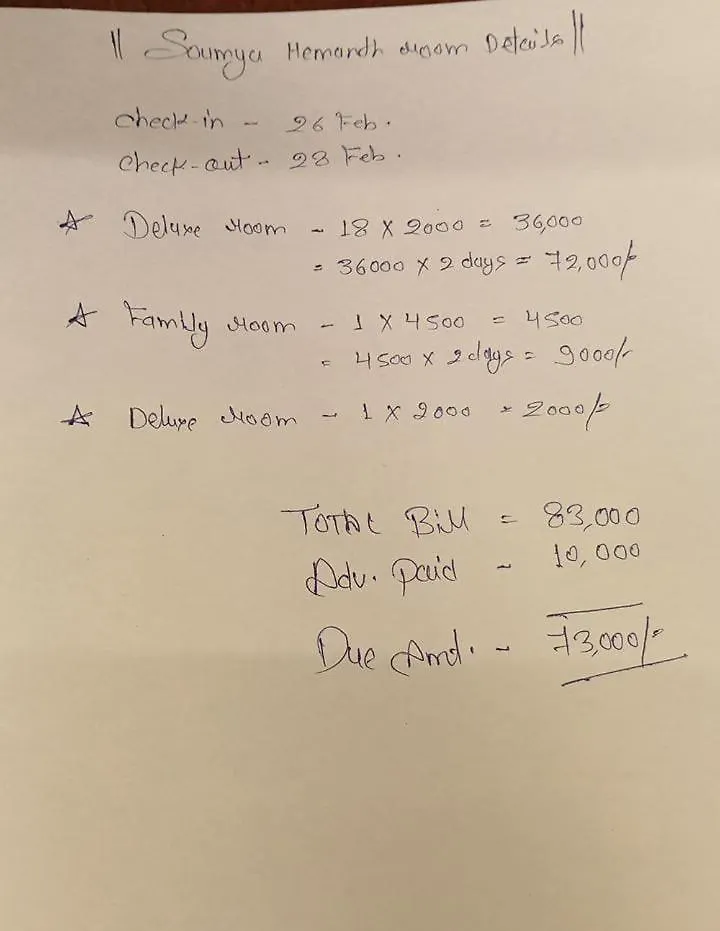 || Soumya Hemandh room Details ||
check-in - 26 Feb.
Check-out - 28 Feb.
☆ Deluxe room - 18 X 2000 = 36,000
= 36000 X 2 days = 72,000/-
☆ Family room - 1 X 4500 = 4500
= 4500 X 2 days = 9000/-
☆ Deluxe room - 1 X 2000 = 2000/-
TOTAL Bill = 83,000
Adv. Paid - 10,000
Due Amd. - 73,000/-